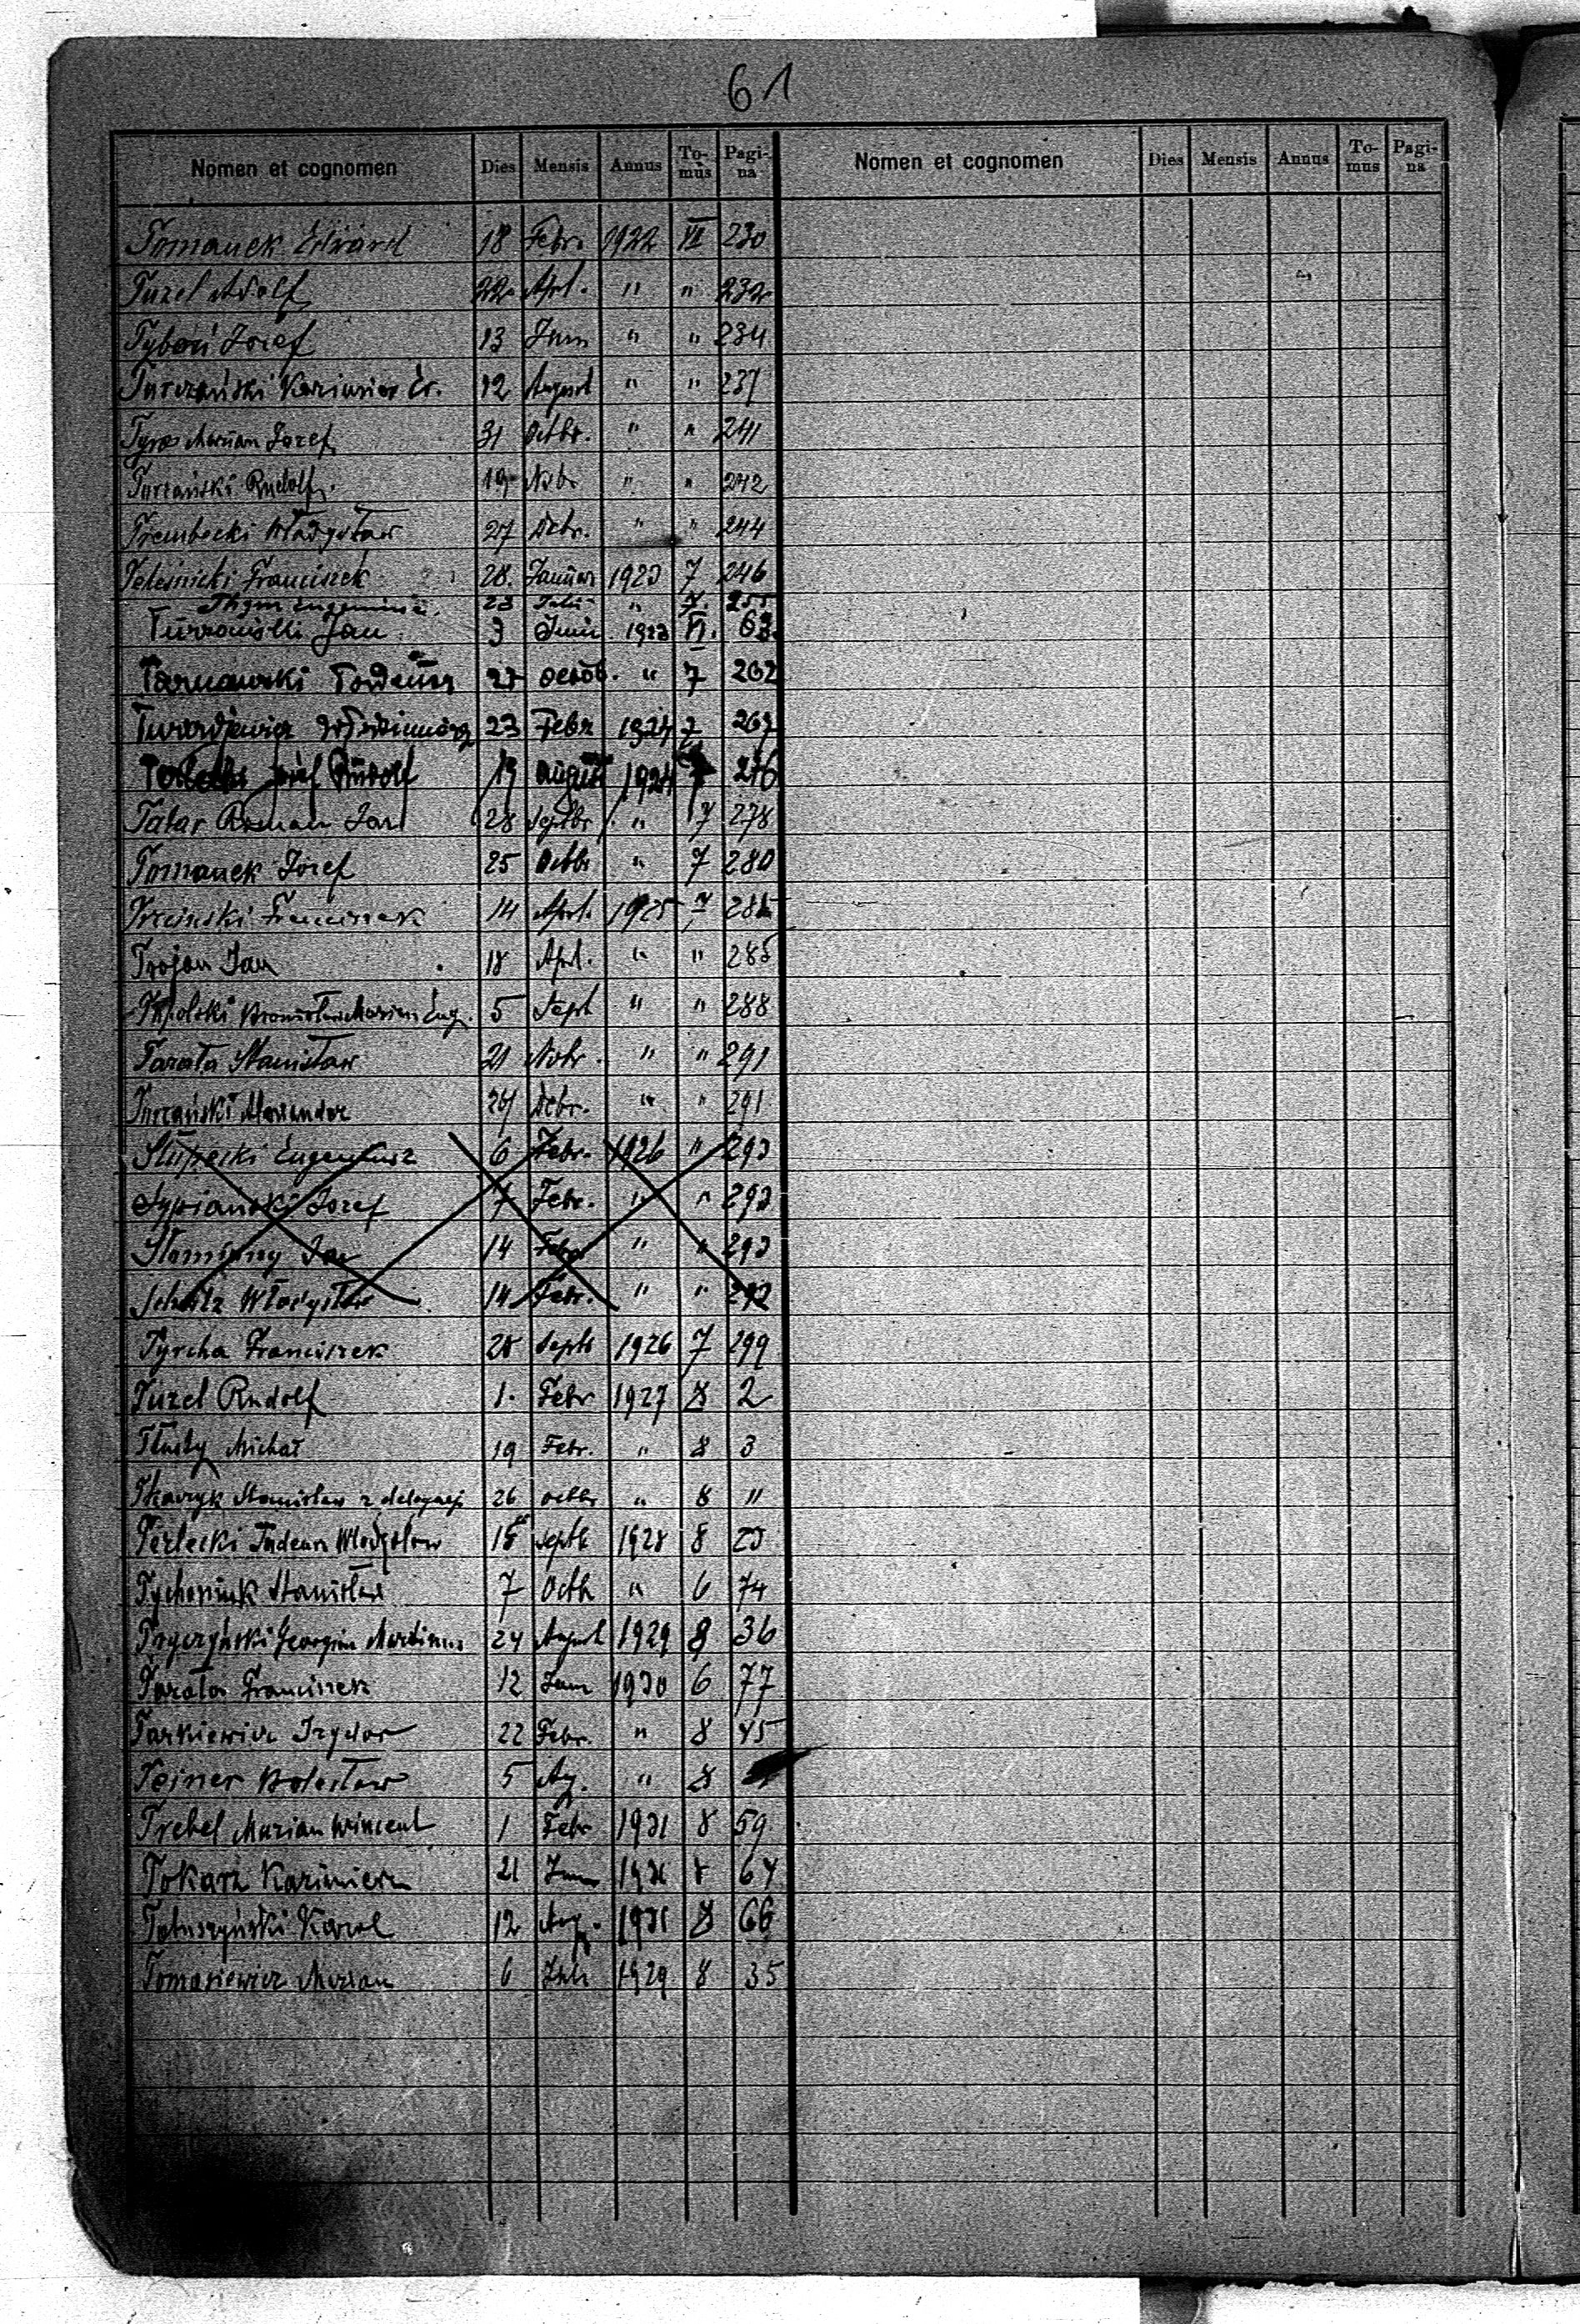 61
Nomen et cognomen Dies Mensis Annus To-mus Pagi-na Nomen et cognomen Dies Mensis Annus To-mus Pagi-na
Tomanek Edward 18 Febr. 1922 VII 230
Turel Adolf 22 Apl. " " 232
Tyboń Józef 13 Juni " " 234
Turczański Kazimierz 12 August " " 237
Marian Józef 31 Octbr. " " 241
Turzański Rudolf 19 Nvbr " " 242
Trembecki Władysław 27 Dcbr. " " 244
Teleśnicki Franciszek 28. Januar 1923 7 246
23 Julii " 7. 255
Jan 3 Juni 1923 VI. 63
Tarnawski Tadeusz 27 octob. " 7 262
23 Febr 1924 7 267
Józef Rudolf 19 august 1924 7 276
Tatar Roman Jan 28 Septbr " 7 278
Tomanek Józef 25 Octbr " 7 280
Franciszek 14 Aprl. 1925 7 285
Trojan Jan 18 Aprl. " " 285
Bronisław Marian Eug. 5 Sept " " 288
Tarata Stanisław 21 Nvbr. " " 291
Turzański Alexander Dcbr. " " 291
Słupecki Eugeniusz 6 Febr. 1926 " 293
Sypianski Józef 7 Febr. " " 293
Słominny Jan 14 Febr " " 293
Władysław 14 Febr. " "
Tyrcha Franciszek 28 Septb 1926 7 299
Turel Rudolf 1. Febr 1927 8 2
Tłusty Michał 19 Febr. " 8 3
Tkaczyk Stanisław z delegacji 26 octbr " 8 11
Terlecki Tadeusz Władysław 15 septb 1928 8 25
Stanisław 7 Octb " 6 74
Georgius Martinus 24 August 1929 8 36
Tarata Franciszek 12 1930 6 77
Tarkiewicz Izydor 22 Febr. " 8 45
Tejner Bolesław 5 Ag. " 8
Trebel Marian Wincent 1 Febr 1931 8 59
Tokarz Kazimierz 21 Juni 1931 8 64
Karol 12 Aug. 1931 8 66
Tomasiewicz Marian 6 Juli 1929 8 35